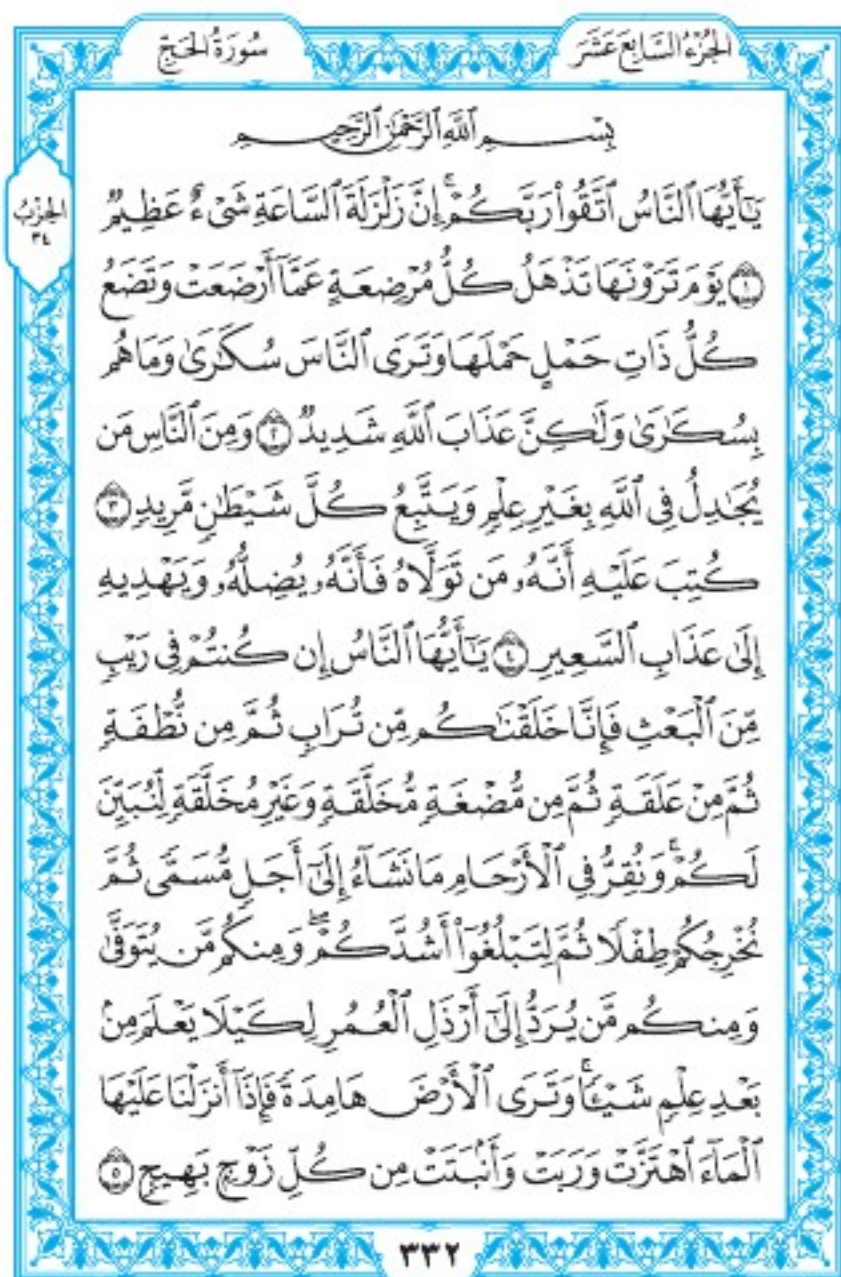 الجُزْءُ السَّابِعَ عَشَرَ
سُورَةُ الحَجِّ
بِسْمِ ٱللَّهِ ٱلرَّحْمَٰنِ ٱلرَّحِيمِ
الحِزْبُ
٣٤
يَٰٓأَيُّهَا ٱلنَّاسُ ٱتَّقُوا۟ رَبَّكُمْ ۚ إِنَّ زَلْزَلَةَ ٱلسَّاعَةِ شَىْءٌ عَظِيمٌ
١ يَوْمَ تَرَوْنَهَا تَذْهَلُ كُلُّ مُرْضِعَةٍ عَمَّآ أَرْضَعَتْ وَتَضَعُ
كُلُّ ذَاتِ حَمْلٍ حَمْلَهَا وَتَرَى ٱلنَّاسَ سُكَٰرَىٰ وَمَا هُم
بِسُكَٰرَىٰ وَلَٰكِنَّ عَذَابَ ٱللَّهِ شَدِيدٌ ٢ وَمِنَ ٱلنَّاسِ مَن
يُجَٰدِلُ فِى ٱللَّهِ بِغَيْرِ عِلْمٍ وَيَتَّبِعُ كُلَّ شَيْطَٰنٍ مَّرِيدٍ ٣
كُتِبَ عَلَيْهِ أَنَّهُۥ مَن تَوَلَّاهُ فَأَنَّهُۥ يُضِلُّهُۥ وَيَهْدِيهِ
إِلَىٰ عَذَابِ ٱلسَّعِيرِ ٤ يَٰٓأَيُّهَا ٱلنَّاسُ إِن كُنتُمْ فِى رَيْبٍ
مِّنَ ٱلْبَعْثِ فَإِنَّا خَلَقْنَٰكُم مِّن تُرَابٍ ثُمَّ مِن نُّطْفَةٍ
ثُمَّ مِنْ عَلَقَةٍ ثُمَّ مِن مُّضْغَةٍ مُّخَلَّقَةٍ وَغَيْرِ مُخَلَّقَةٍ لِّنُبَيِّنَ
لَكُمْ ۚ وَنُقِرُّ فِى ٱلْأَرْحَامِ مَا نَشَآءُ إِلَىٰٓ أَجَلٍ مُّسَمًّى ثُمَّ
نُخْرِجُكُمْ طِفْلًا ثُمَّ لِتَبْلُغُوٓا۟ أَشُدَّكُمْ ۖ وَمِنكُم مَّن يُتَوَفَّىٰ
وَمِنكُم مَّن يُرَدُّ إِلَىٰٓ أَرْذَلِ ٱلْعُمُرِ لِكَيْلَا يَعْلَمَ مِنۢ
بَعْدِ عِلْمٍ شَيْـًٔا ۚ وَتَرَى ٱلْأَرْضَ هَامِدَةً فَإِذَآ أَنزَلْنَا عَلَيْهَا
ٱلْمَآءَ ٱهْتَزَّتْ وَرَبَتْ وَأَنۢبَتَتْ مِن كُلِّ زَوْجٍۭ بَهِيجٍ ٥
٣٣٢